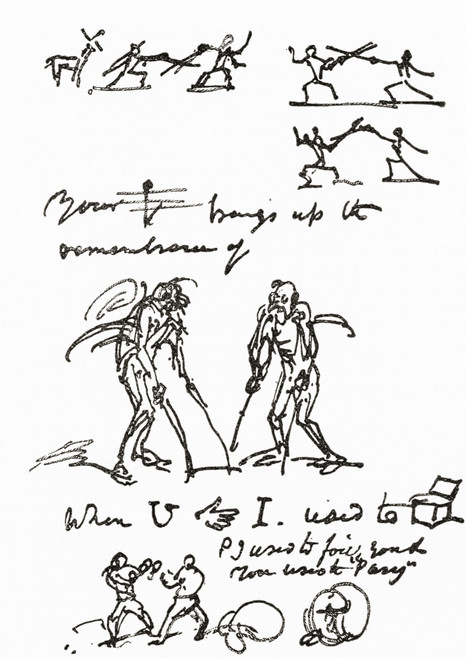 Your brings up the
remembrance of
When U I. used to
I used to
You used to "Parry"